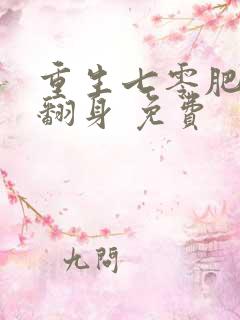 重生七零肥
翻身 免費
九問